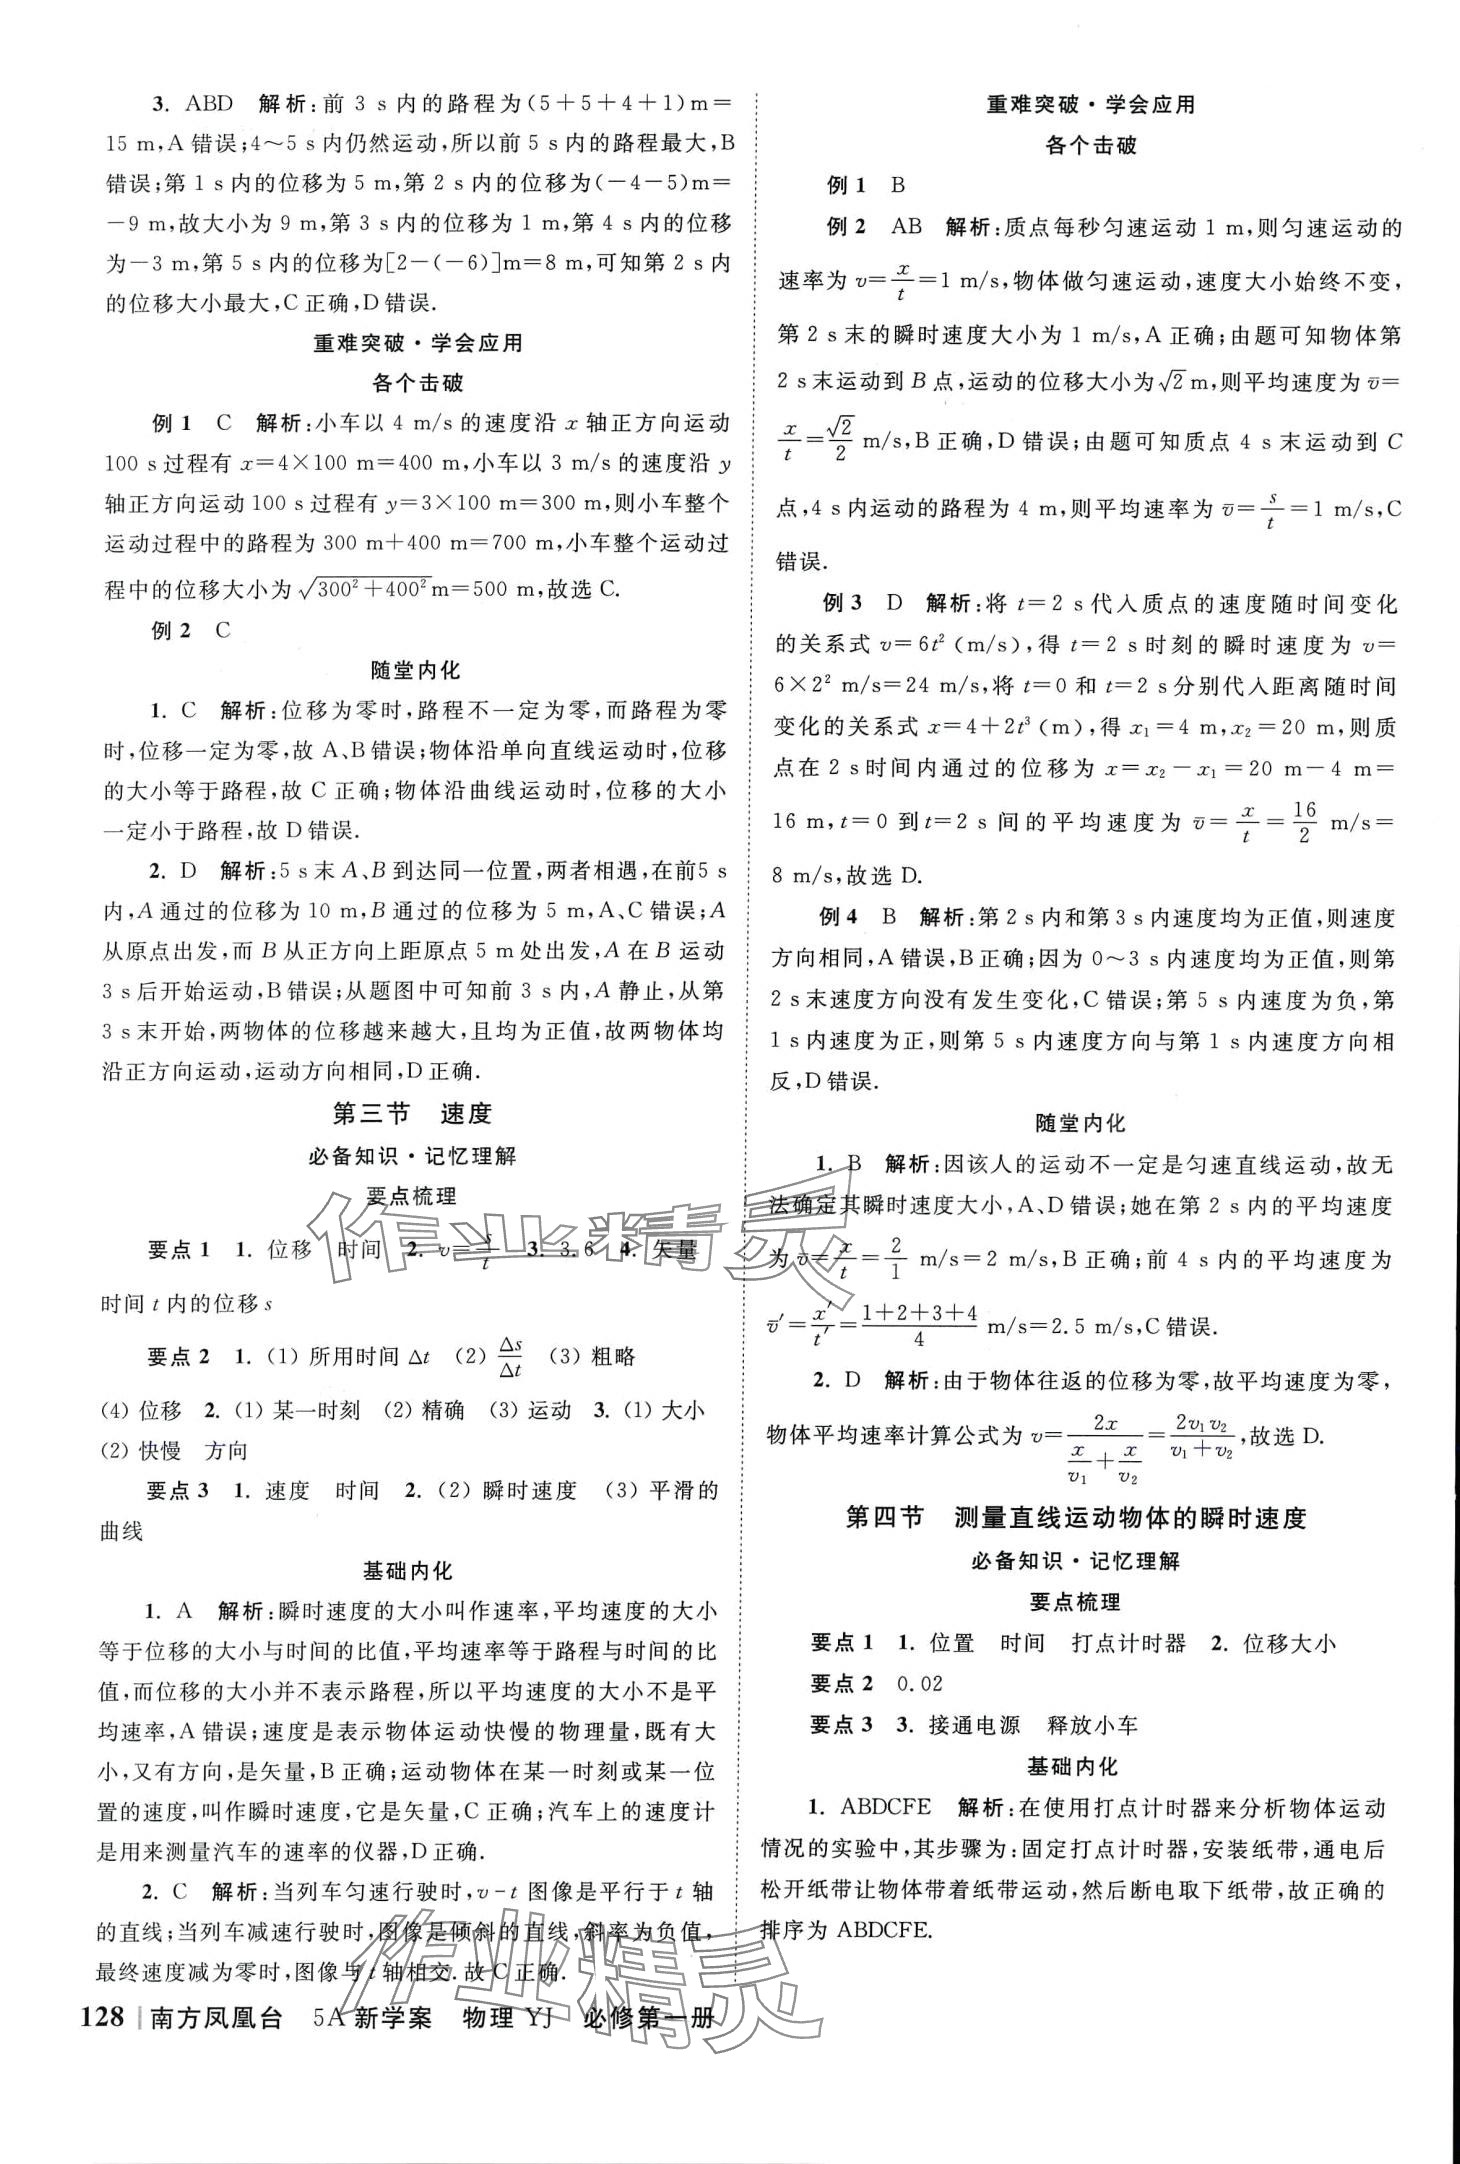 3. ABD 解析:前 3 s 内的路程为(5+5+4+1)m=
15 m,A 错误;4～5 s内仍然运动,所以前 5 s内的路程最大,B
错误;第 1 s内的位移为 5 m,第 2 s内的位移为(-4-5)m=
-9 m,故大小为 9 m,第 3 s内的位移为 1 m,第 4 s内的位移
为-3 m,第 5 s内的位移为[2-(-6)]m=8 m,可知第 2 s内
的位移大小最大,C 正确,D 错误.
重难突破·学会应用
各个击破
例 1 C 解析:小车以 4 m/s 的速度沿 x 轴正方向运动
100 s过程有 x=4×100 m=400 m,小车以 3 m/s 的速度沿 y
轴正方向运动 100 s过程有 y=3×100 m=300 m,则小车整个
运动过程中的路程为 300 m+400 m=700 m,小车整个运动过
程中的位移大小为√(300²+400²)m=500 m,故选 C.
例 2 C
随堂内化
1. C 解析:位移为零时,路程不一定为零,而路程为零
时,位移一定为零,故 A、B 错误;物体沿单向直线运动时,位移
的大小等于路程,故 C 正确;物体沿曲线运动时,位移的大小
一定小于路程,故 D 错误.
2. D 解析:5 s末 A、B 到达同一位置,两者相遇,在前5 s
内,A 通过的位移为 10 m,B 通过的位移为 5 m,A、C 错误;A
从原点出发,而 B 从正方向上距原点 5 m 处出发,A 在 B 运动
3 s后开始运动,B 错误;从题图中可知前 3 s内,A 静止,从第
3 s末开始,两物体的位移越来越大,且均为正值,故两物体均
沿正方向运动,运动方向相同,D 正确.
第三节 速度
必备知识·记忆理解
要点梳理
要点 1 1. 位移 时间 2. v=s/t 3. 3.6 4. 矢量
时间 t 内的位移 s
要点 2 1. (1) 所用时间 Δt (2) Δs/Δt (3) 粗略
(4) 位移 2. (1) 某一时刻 (2) 精确 (3) 运动 3. (1) 大小
(2) 快慢 方向
要点 3 1. 速度 时间 2. (2) 瞬时速度 (3) 平滑的
曲线
基础内化
1. A 解析:瞬时速度的大小叫作速率,平均速度的大小
等于位移的大小与时间的比值,平均速率等于路程与时间的比
值,而位移的大小并不表示路程,所以平均速度的大小不是平
均速率,A 错误;速度是表示物体运动快慢的物理量,既有大
小,又有方向,是矢量,B 正确;运动物体在某一时刻或某一位
置的速度,叫作瞬时速度,它是矢量,C 正确;汽车上的速度计
是用来测量汽车的速率的仪器,D 正确.
2. C 解析:当列车匀速行驶时,v-t 图像是平行于 t 轴
的直线;当列车减速行驶时,图像是倾斜的直线,斜率为负值,
最终速度减为零时,图像与 t 轴相交.故 C 正确.
重难突破·学会应用
各个击破
例 1 B
例 2 AB 解析:质点每秒匀速运动 1 m,则匀速运动的
速率为 v=x/t=1 m/s,物体做匀速运动,速度大小始终不变,
第 2 s末的瞬时速度大小为 1 m/s,A 正确;由题可知物体第
2 s末运动到 B 点,运动的位移大小为√2 m,则平均速度为 v̄=
x/t=√2/2 m/s,B 正确,D 错误;由题可知质点 4 s末运动到 C
点,4 s内运动的路程为 4 m,则平均速率为 v̄=s/t=1 m/s,C
错误.
例 3 D 解析:将 t=2 s代入质点的速度随时间变化
的关系式 v=6t² (m/s),得 t=2 s时刻的瞬时速度为 v=
6×2² m/s=24 m/s,将 t=0 和 t=2 s分别代入距离随时间
变化的关系式 x=4+2t³ (m),得 x₁=4 m,x₂=20 m,则质
点在 2 s时间内通过的位移为 x=x₂-x₁=20 m-4 m=
16 m,t=0 到t=2 s间的平均速度为 v̄=x/t=16/2 m/s=
8 m/s,故选 D.
例 4 B 解析:第 2 s内和第 3 s内速度均为正值,则速度
方向相同,A 错误,B 正确;因为 0～3 s内速度均为正值,则第
2 s末速度方向没有发生变化,C 错误;第 5 s内速度为负,第
1 s内速度为正,则第 5 s内速度方向与第 1 s内速度方向相
反,D 错误.
随堂内化
1. B 解析:因该人的运动不一定是匀速直线运动,故无
法确定其瞬时速度大小,A、D 错误;她在第 2 s内的平均速度
为 v̄=x/t=2/1 m/s=2 m/s,B 正确;前 4 s内的平均速度为
v̄′=x′/t′=(1+2+3+4)/4 m/s=2.5 m/s,C 错误.
2. D 解析:由于物体往返的位移为零,故平均速度为零,
物体平均速率计算公式为 v=2x/(x/v₁+x/v₂)=2v₁v₂/(v₁+v₂),故选 D.
第四节 测量直线运动物体的瞬时速度
必备知识·记忆理解
要点梳理
要点 1 1. 位置 时间 打点计时器 2. 位移大小
要点 2 0.02
要点 3 3. 接通电源 释放小车
基础内化
1. ABDCFE 解析:在使用打点计时器来分析物体运动
情况的实验中,其步骤为:固定打点计时器,安装纸带,通电后
松开纸带让物体带着纸带运动,然后断电取下纸带,故正确的
排序为 ABDCFE.
128 南方凤凰台 5A 新学案 物理 YJ 必修第一册
作业精灵
作业精灵